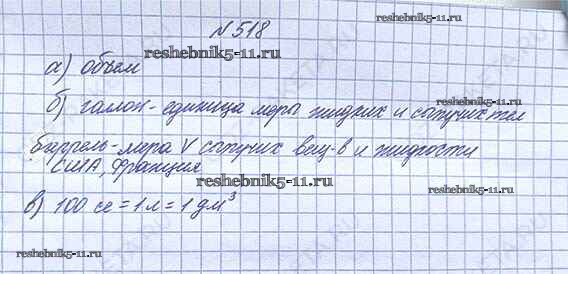 №518
reshebnik5-11.ru
reshebnik5-11.ru
а) объем
reshebnik5-11.ru
б) галон - единица меры жидких и сыпучих тел
баррель - мера V сыпучих вещ-в и жидкости
США, Франция
reshebnik5-11.ru
reshebnik5-11.ru
в) 100 се = 1 л = 1 дм³
reshebnik5-11.ru